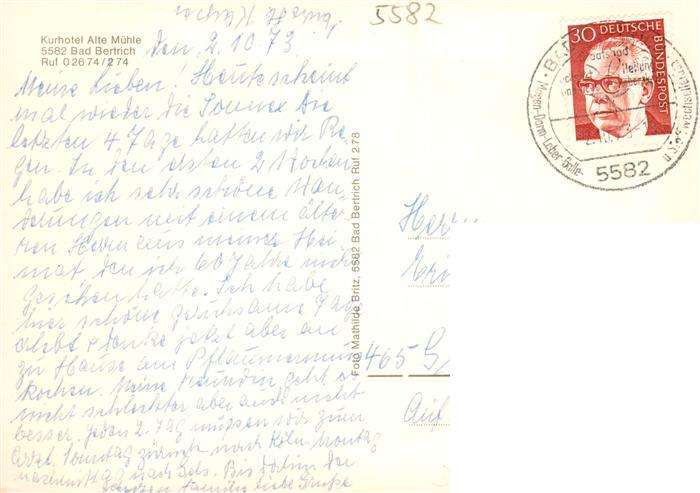 5582
Kurhotel Alte Mühle
5582 Bad Bertrich
Ruf 02674/274
den 2.10.73
Meine Lieben! Heute scheint
mal wieder die Sonne. Die
letzten 4 Tage hatten wir Re-
gen. In den ersten 2 Wochen
habe ich sehr schöne Wan
derungen mit einem älte-
ren Herrn aus meiner Hei
mat, den ich 60 Jahre nicht
gesehen hatte. Ich habe
hier schöne Tage
erlebt denke jetzt aber an
zu Hause am Pflaumenmus
kochen. Meine Freundin geht es
nicht schlechter aber auch nicht
besser. jeden 2. Tag müssen wir zum
Arzt. Sonntag zurück nach Köln Montag
nach Bis dahin
liebe Grüße
Foto Mathilde Britz, 5582 Bad Bertrich Ruf 278
30 DEUTSCHE BUNDESPOST
Magen-Darm-Leber-Galle-
5582
Herr
465 G
Auf